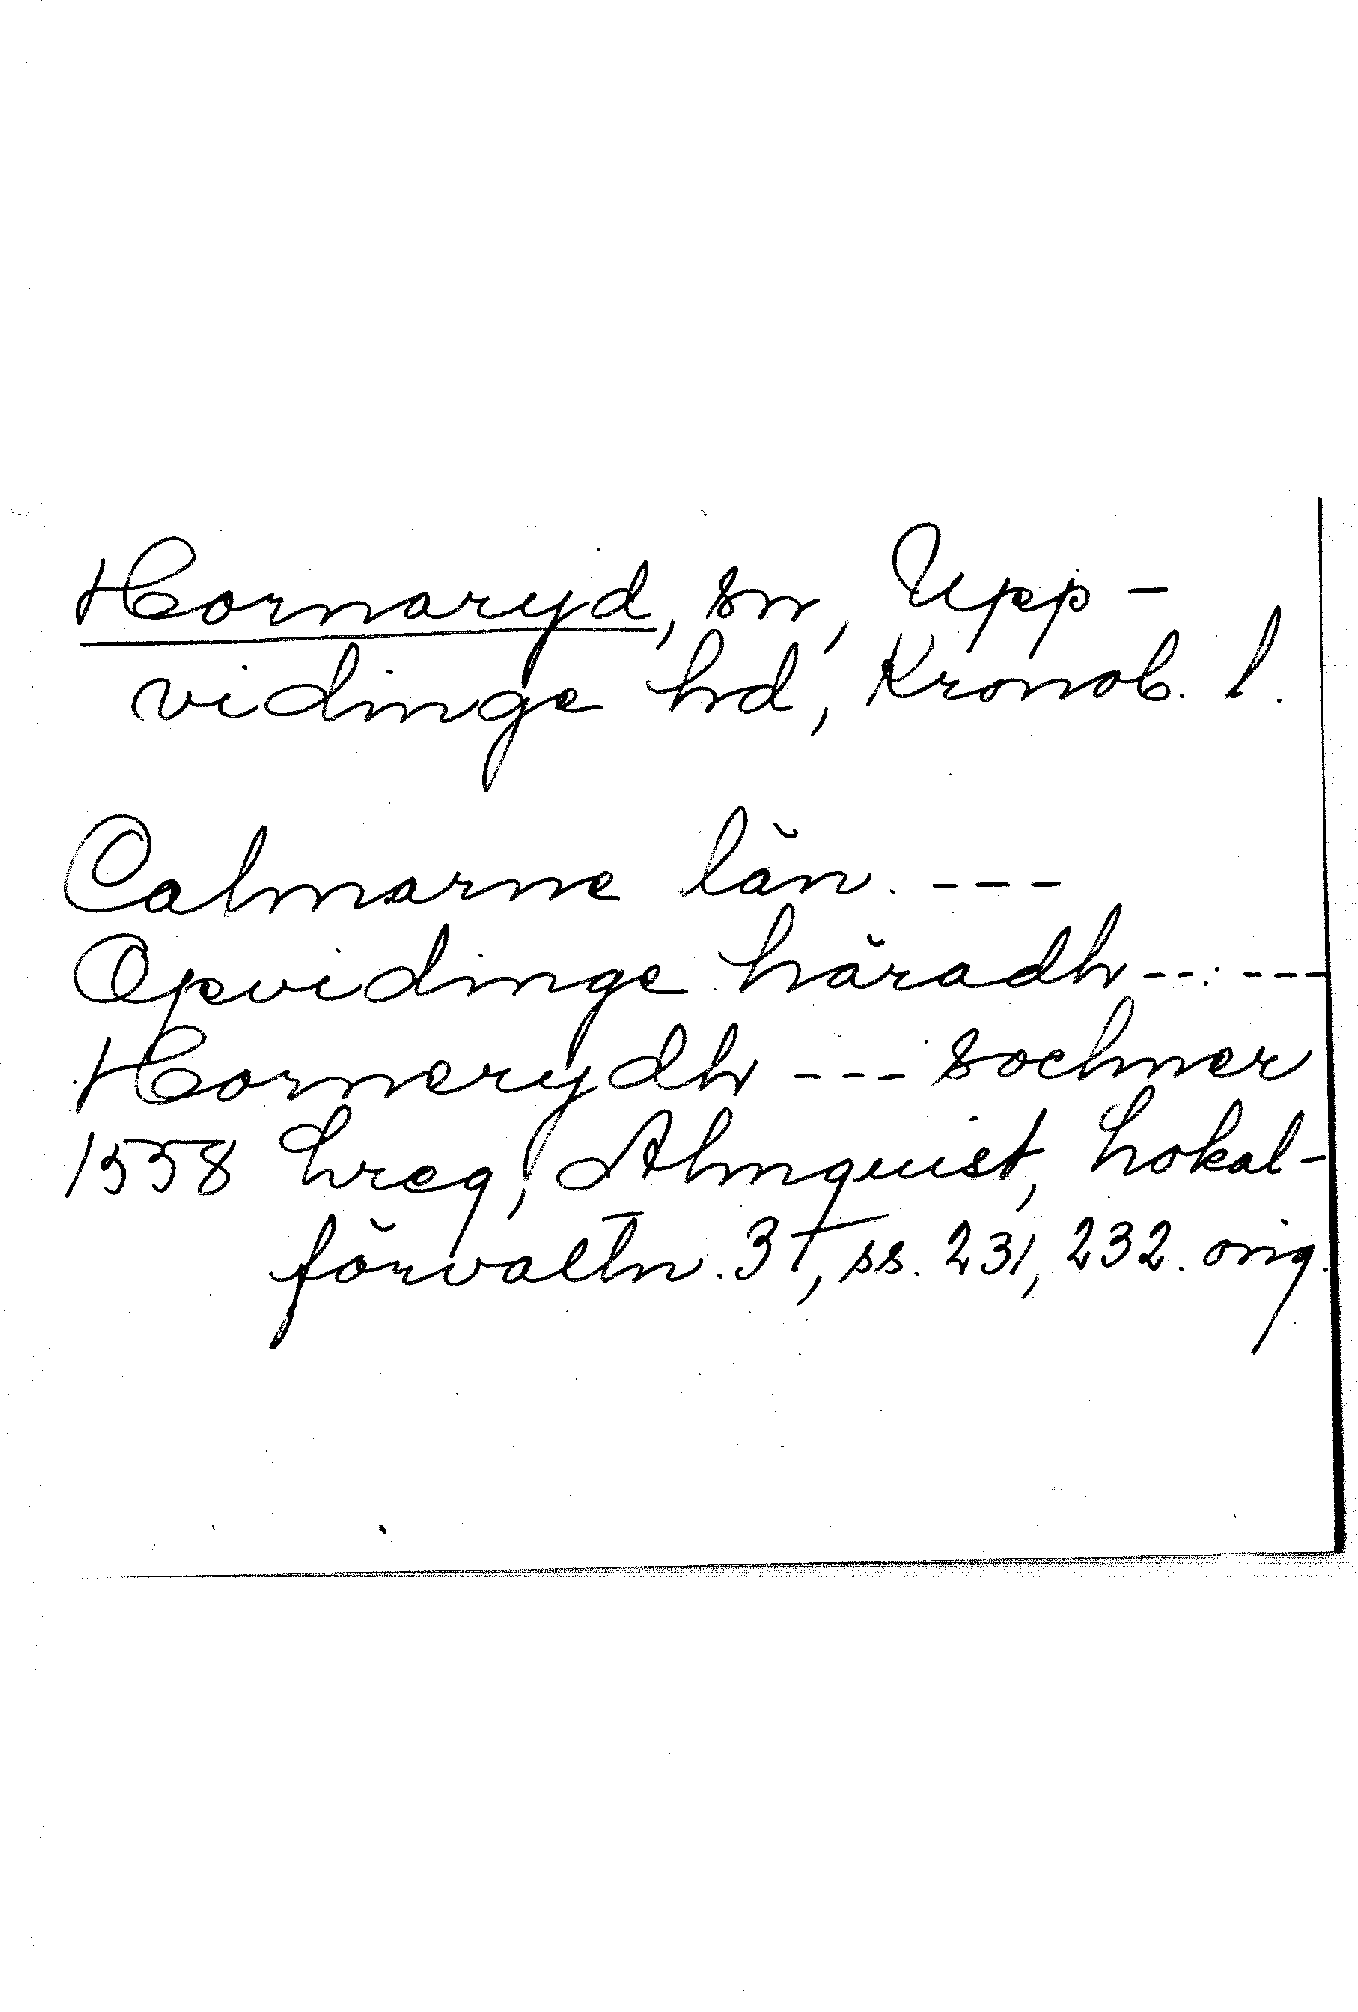 Hornaryd, sn, Upp-
vidinge hd, Kronob. l.
Calmarne län. ---
Opvidinge häradh --- ---
Hornerydh --- sochner
1558 Lreg, Almquist, Lokal-
förvaltn. 3T, ss. 231, 232. orig.